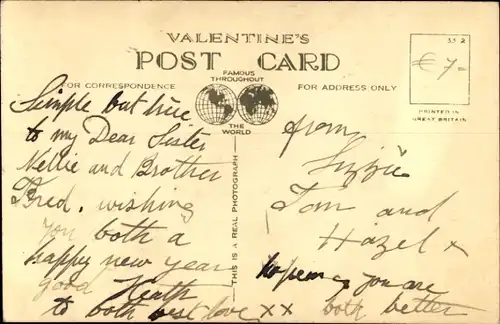 VALENTINE'S
POST CARD
FAMOUS
THROUGHOUT
THE
WORLD
FOR CORRESPONDENCE
FOR ADDRESS ONLY
33.2
€7-
PRINTED IN
GREAT BRITAIN
THIS IS A REAL PHOTOGRAPH
Simple but true
to my Dear Sister
Nellie and Brother
Fred. wishing
you both a
happy new year
good Heath
to both best love xx
from
Lizzie
Tom and
Hazel x
you are
both better